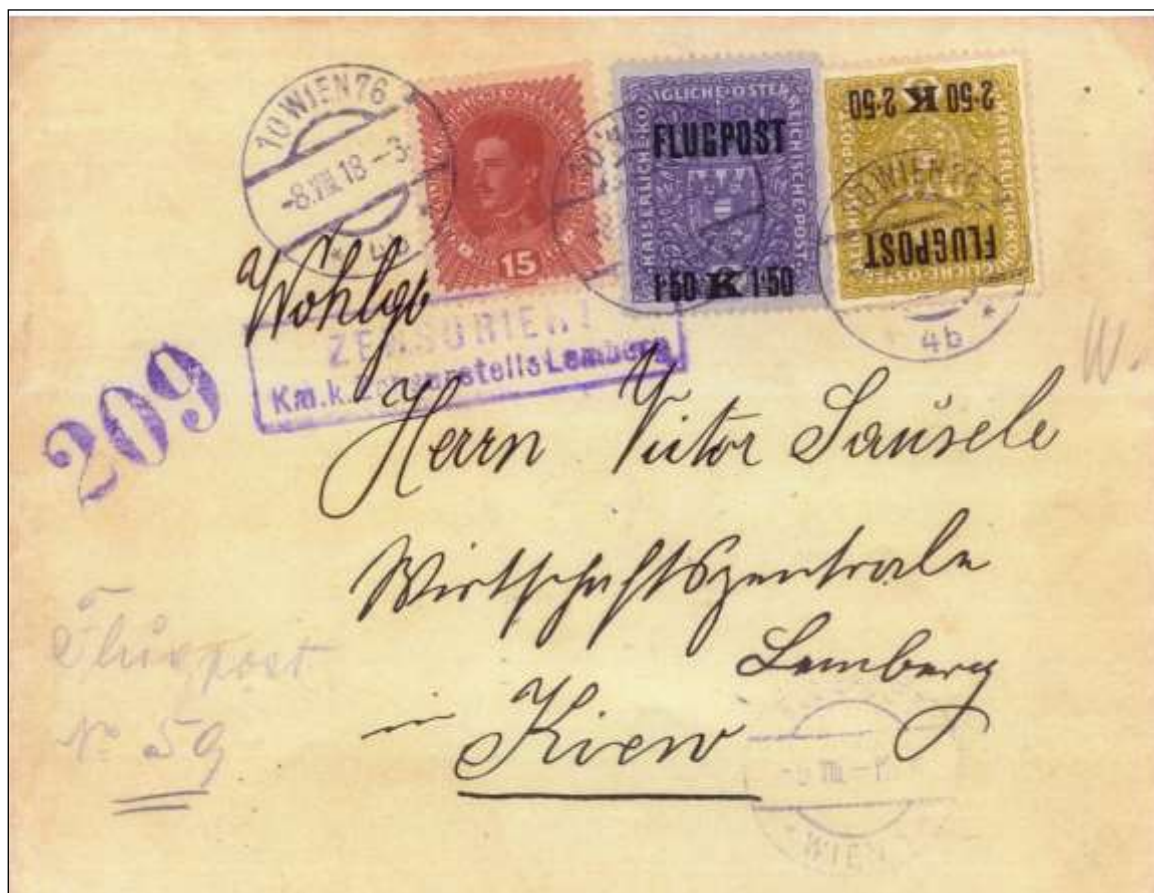 10 WIEN 76
-8.VIII.18-3
15
KAISERLICHE KÖNIGLICHE ÖSTERREICHISCHE POST
FLUGPOST
1·50 K 1·50
2·50 K 2·50
FLUGPOST
10 WIEN 76
4b
*
Wohlgb
ZENSURIERT
K.u.k. Zensurstelle Lemberg
209
Herrn Victor Säusele
Wirtschaftszentrale
Lemberg
Kiew
Flugpost
No 59
VIII
WIEN